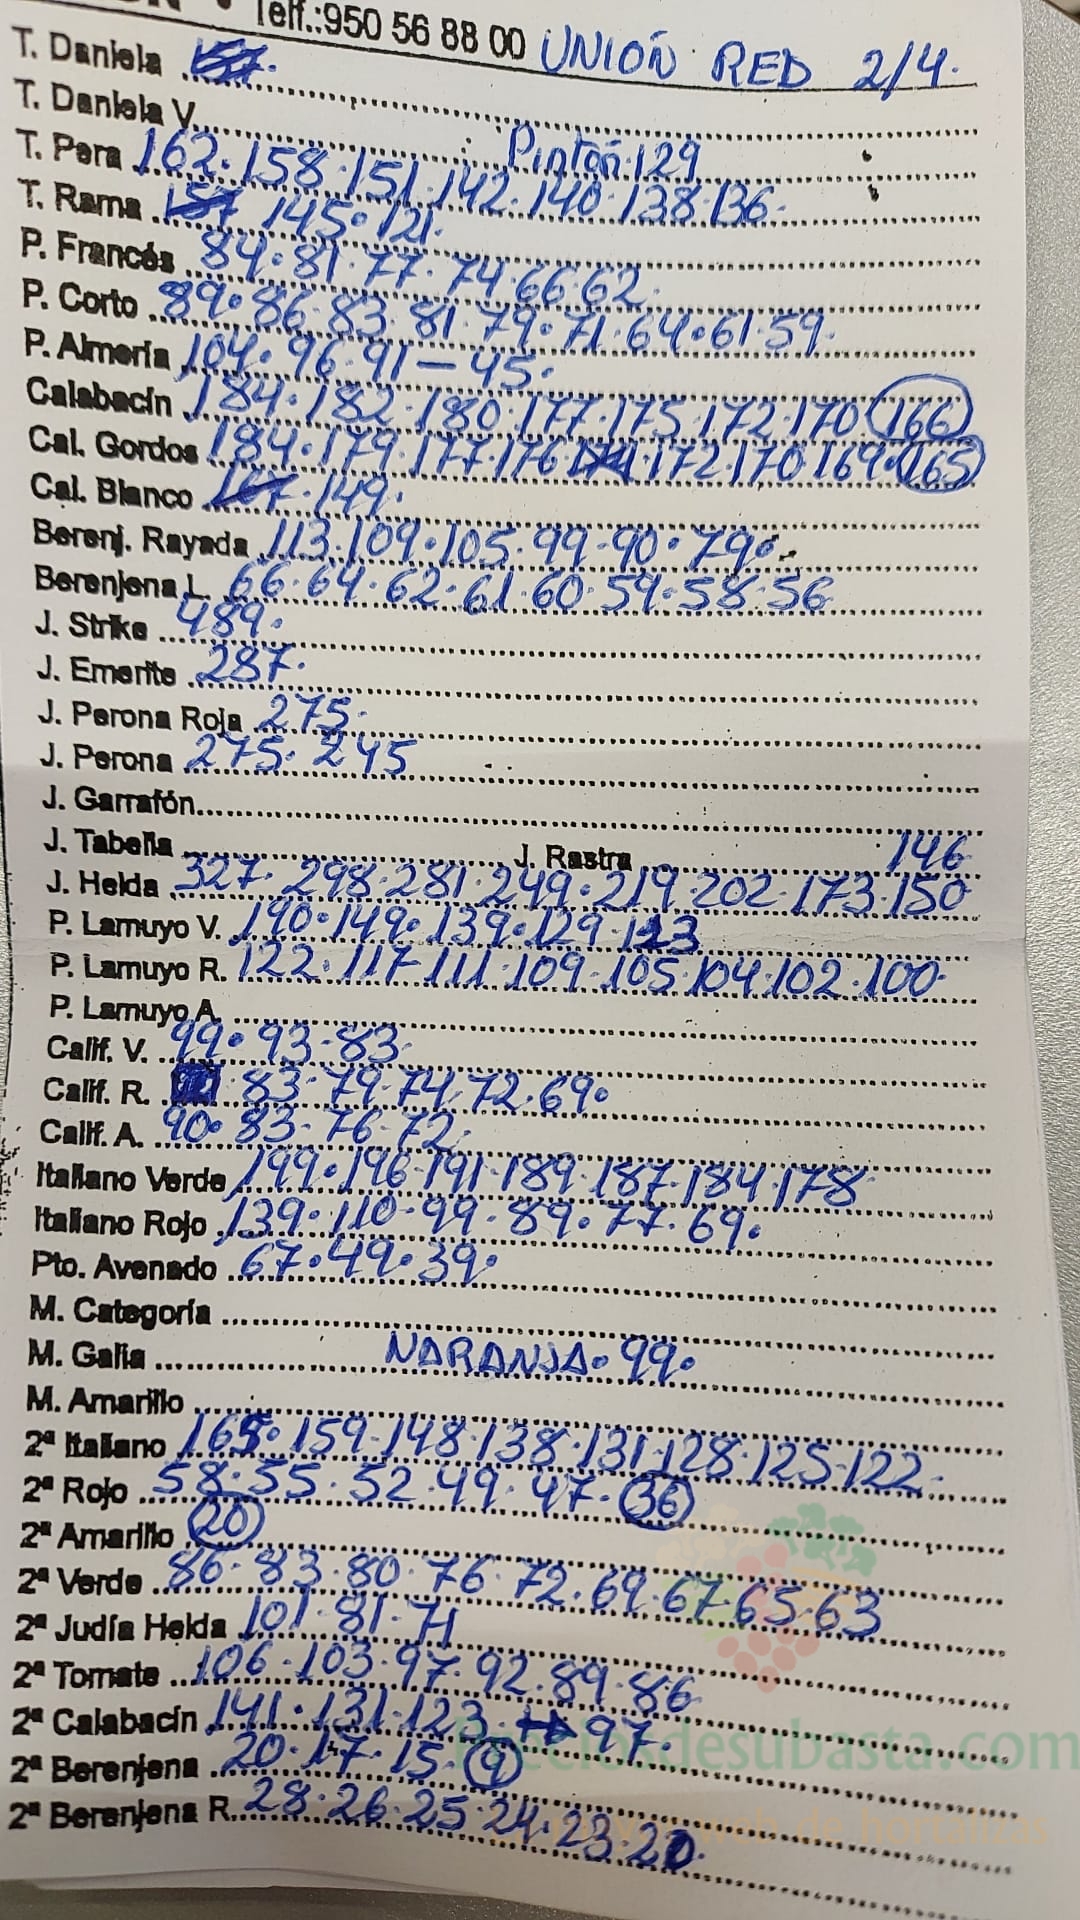 Telf.:950 56 88 00 UNIÓN RED 2/4.
T. Daniela
T. Daniela V. Pintón 129
T. Pera 162. 158. 151. 142. 140. 138. 136.
T. Rama 145. 121.
P. Francés 84. 81. 77. 74. 66. 62.
P. Corto 89. 86. 83. 81. 79. 71. 64. 61. 59.
P. Almería 104. 96. 91 — 45.
Calabacín 184. 182. 180. 177. 175. 172. 170 166
Cal. Gordos 184. 179. 177. 176 172. 170. 169. 165
Cal. Blanco 149.
Berenj. Rayada 113. 109. 105. 99. 90. 79.
Berenjena L. 66. 64. 62. 61. 60. 59. 58. 56
J. Strike 489.
J. Emerite 287.
J. Perona Roja 275.
J. Perona 275. 245
J. Garrafón
J. Tabella J. Rastra 146
J. Helda 327. 298. 281. 249. 219. 202. 173. 150
P. Lamuyo V. 190. 149. 139. 129.
P. Lamuyo R. 122. 117. 111. 109. 105. 104. 102. 100.
P. Lamuyo A.
Calif. V. 99. 93. 83.
Calif. R. 83. 79. 74. 72. 69.
Calif. A. 90. 83. 76. 72.
Italiano Verde 199. 196. 191. 189. 187. 184. 178
Italiano Rojo 139. 110. 99. 89. 77. 69.
Pto. Avenado 67. 49. 39.
M. Categoría
M. Galia NARANJA. 99.
M. Amarillo
2ª Italiano 159. 148. 138. 131. 128. 125. 122.
2ª Rojo 58. 55. 52. 49. 47. 36
2ª Amarillo 20
2ª Verde 86. 83. 80. 76. 72. 69. 67. 65. 63
2ª Judía Helda 101. 81. 71
2ª Tomate 106. 103. 97. 92. 89. 86
2ª Calabacín 141. 131. 123. → 97.
Preciosdesubasta.com
2ª Berenjena 20. 17. 15. 9
2ª Berenjena R. 28. 26. 25. 24. 23. 20.
web de hortalizas